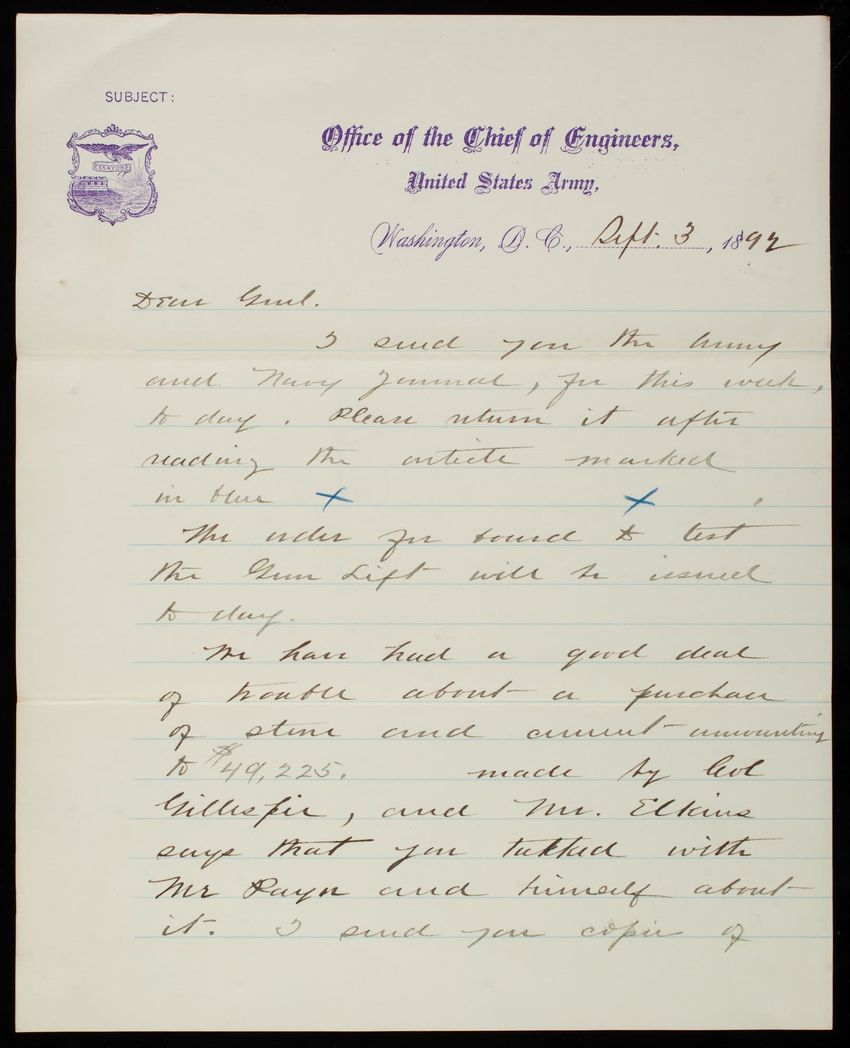 SUBJECT:
ESSAYONS
Office of the Chief of Engineers,
United States Army,
Washington, D. C., Sept. 3, 1892
Dear Genl.
I send you the Army
and Navy Journal, for this week,
to day. Please return it after
reading the article marked
in blue X X
The order for board to test
the Gun Lift will be issued
to day.
We have had a good deal
of trouble about a purchase
of stone and cement amounting
to $49,225. made by Col
Gillespie, and Mr. Elkins
says that you talked with
Mr Rayn and himself about
it. I send you copies of